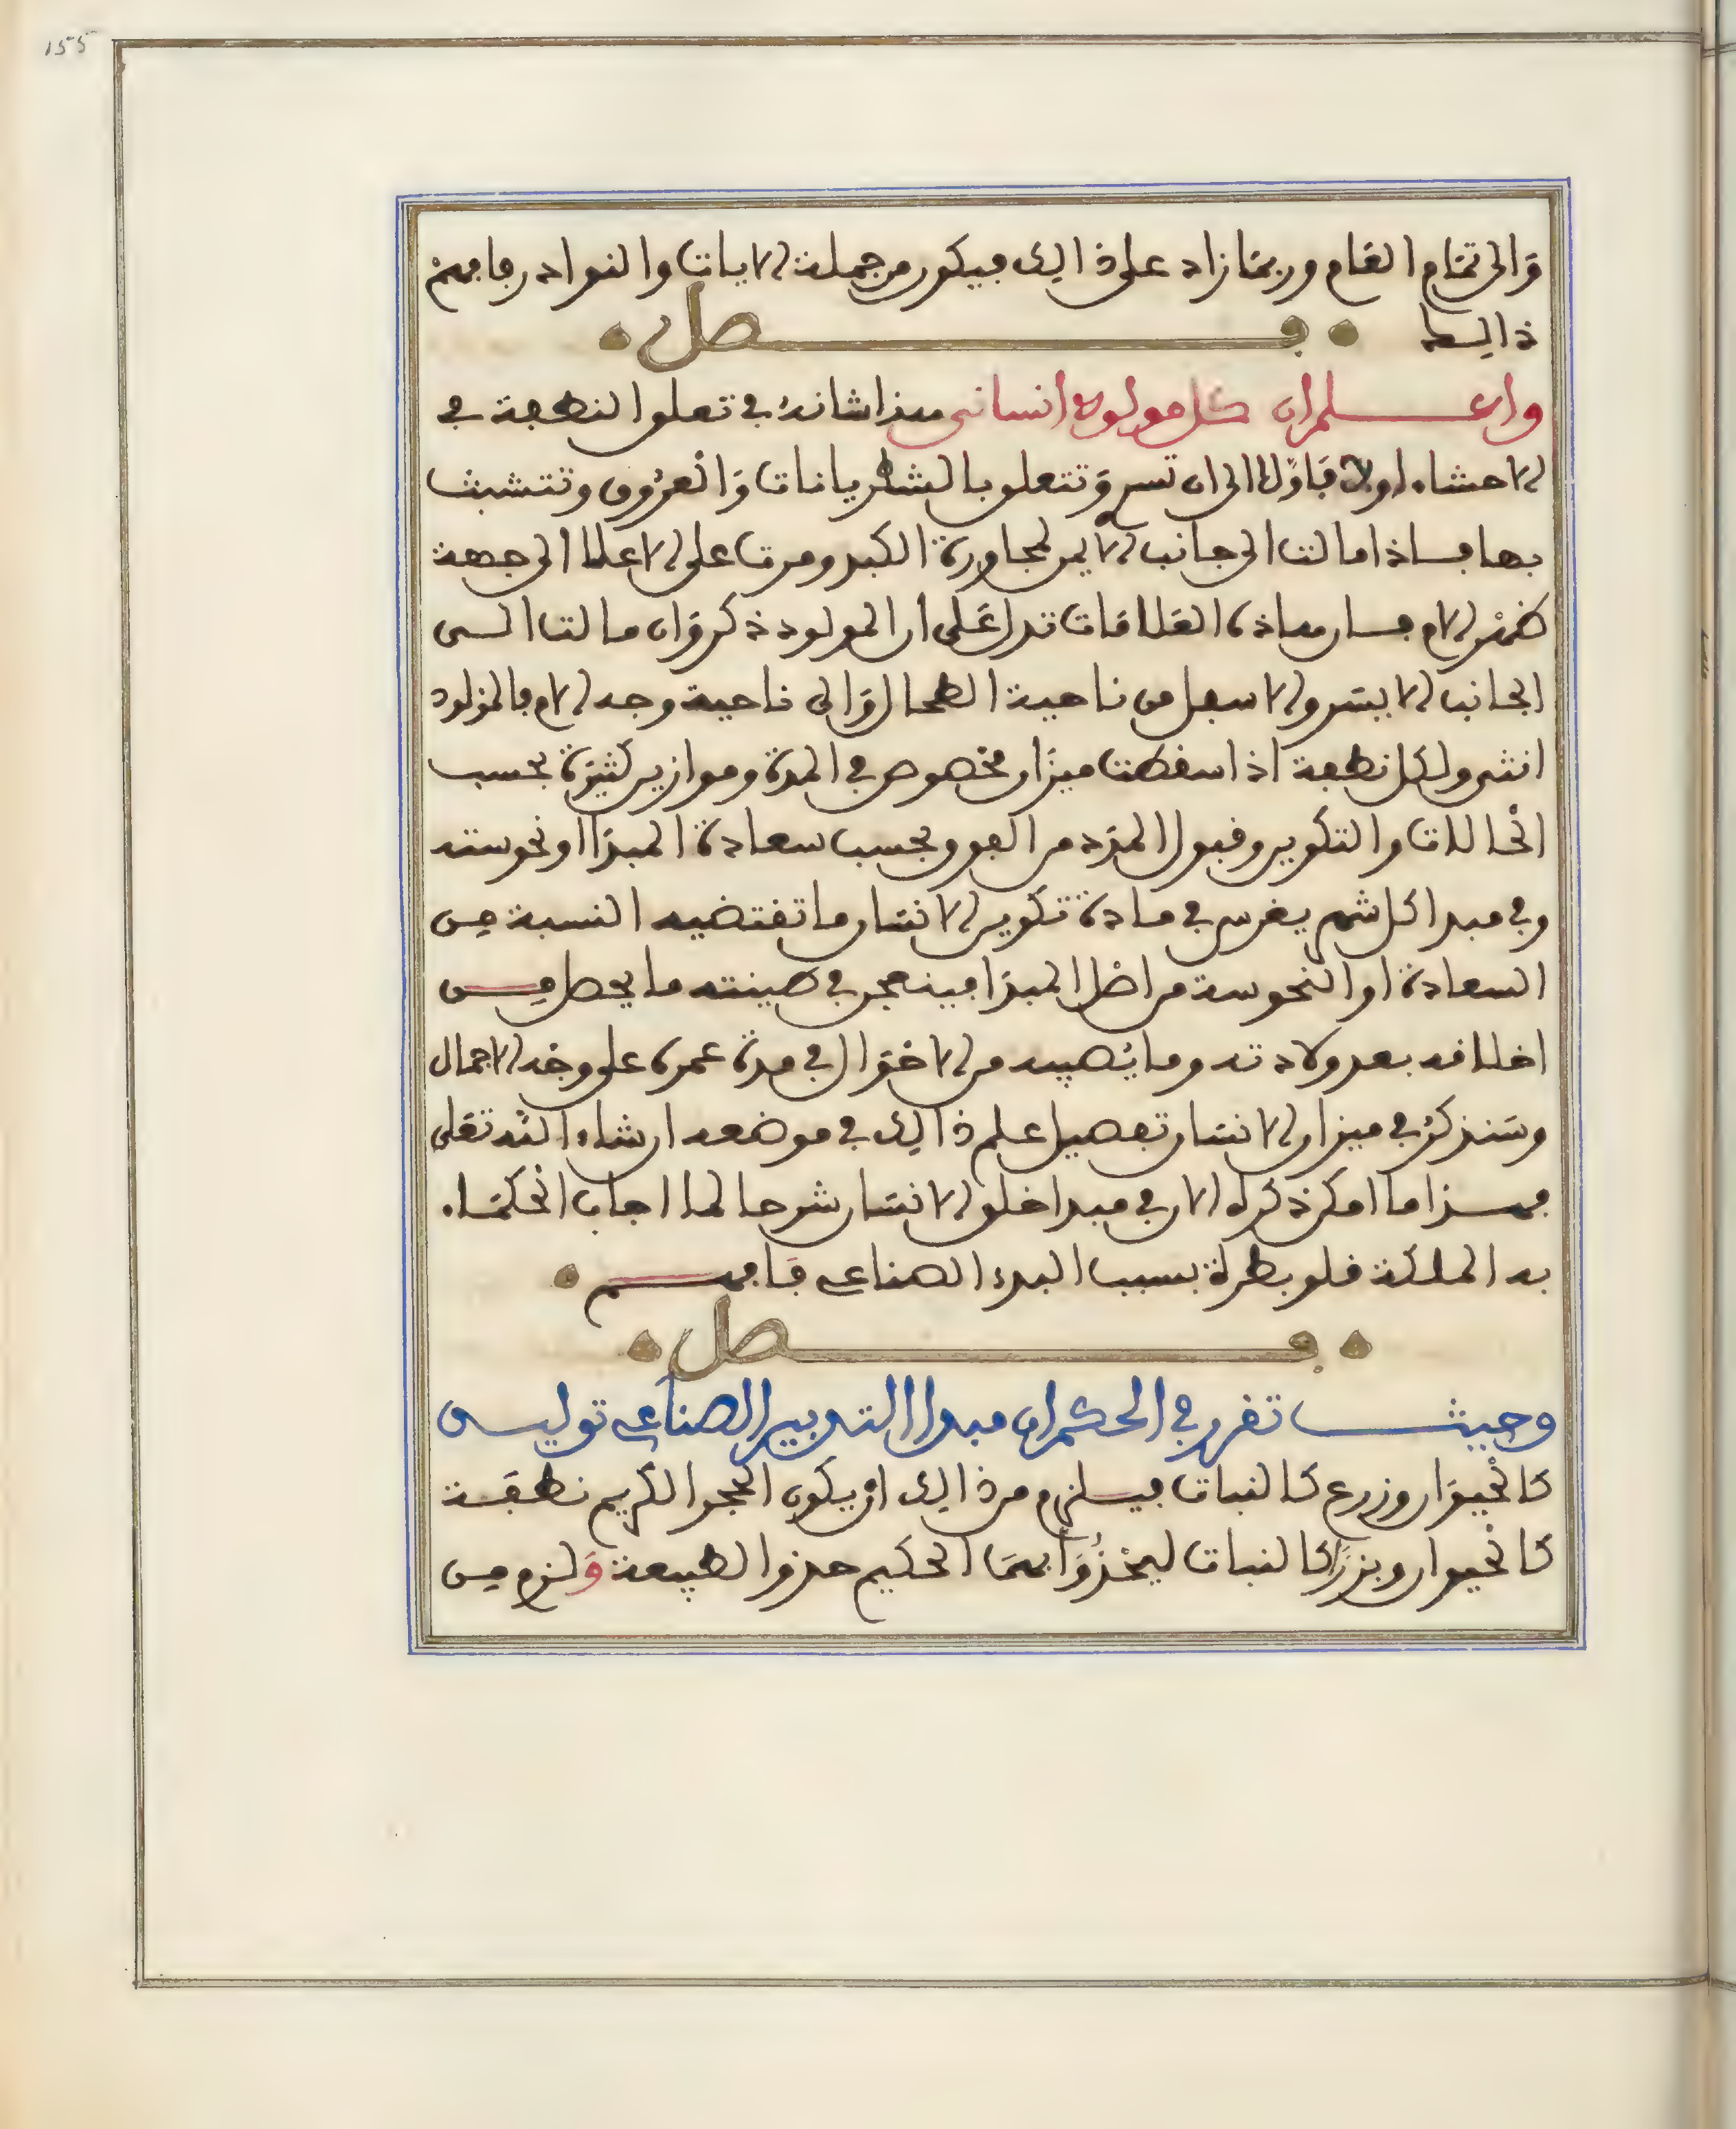 155
والى تمام العام وربما زاد على ذالك فيكون من جملة الايات والنوادر فافهم
ذالك
فصل
واعلم ان كل مولود انساني هذا شانه في تعلق النطفة في
الاحشاء اولا فاولا الى ان تسر وتتعلق بالشطريانات والعروق وتتشبث
بها فاذا مالت الى جانب الايمن لمجاورة الكبد ومرت على الاعلا الى جهة
ضهر الام فان هاذه العلامات تدل على ان المولود ذكر وان مالت الى
الجانب الايسر والاسفل من ناحية الطحال والى ناحية وجه الام فالمولود
انثى ولكل نطفة اذا سقطت ميزان مخصوص في المدة وموازين كثيرة بحسب
الحالات والتكوين وقبول المدد من العو وبحسب سعادة المبدا او نحوسته
وفي مبدا كل شيء يغرس في مادة تكوين الانسان ما تقتضيه النسبة من
السعادة او النحوسة من اصل المبدا فينعجن في طينته ما يحصل من
اخلاقه بعد ولادته وما يصيبه من الاحوال في مدة عمره على وجه الاجمال
وسنذكر في ميزان الانسان تفصيل علم ذالك في موضعه ان شاء الله تعلى
فهذا ما امكن ذكره الان في مبدا خلق الانسان شرحا لما اجاب الحكماء
به الملكة قلوبطرة بسبب البدء الصناعي فافهم
فصل
وحيث تقرر في الحكم ان مبدا التدبير الصناعي توليد
كالحيوان وزرع كالنبات فيلزم من ذالك ان يكون الحجر الكريم نطفة
كالحيوان وبزرا كالنبات ليحذوا بهما الحكيم حذو الطبيعة ولزم من